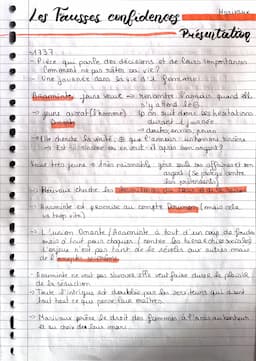 Les Fausses confidences
Marivaux
Présentation
→1737
- Pièce qui parle des décisions et de leurs importances
Comment ne pas rater sa vie ?
- Une journée dans la vie d'1 femme
Araminte, jeune veuve → rencontre français quand elle
s'y attend
→ jeune avocat (l'homme)
Dorante
durant 1 journée
→ doutes, envies, peurs
→ Elle cherche la vérité,
→ Est-il sincère ou en veut-il après son argent ?
Veuve très jeune → très raisonnable gère seule ses affaires et son
argent (se protège contre
les prétendants)
→ Marivaux cherche les
→ Araminte est promise au compte Dorimont (mais cela
va trop vite)
→ L'union Dorante/Araminte à tout d'un coup de foudre
mais a tout pour choquer / contre les hiérarchies sociales
L'enjeu n'est pas tant de le révéler aux autres mais
de l'accepter soi-même
→ Araminte ne veut pas s'avouer elle veut faire durer le plaisir
de la séduction
→ Toute l'intrigue est doublée par les serviteurs qui disent
tout haut ce que pense leur maîtres
→ Marivaux prône le droit des femmes à l'accès au bonheur
et au choix de leur mari